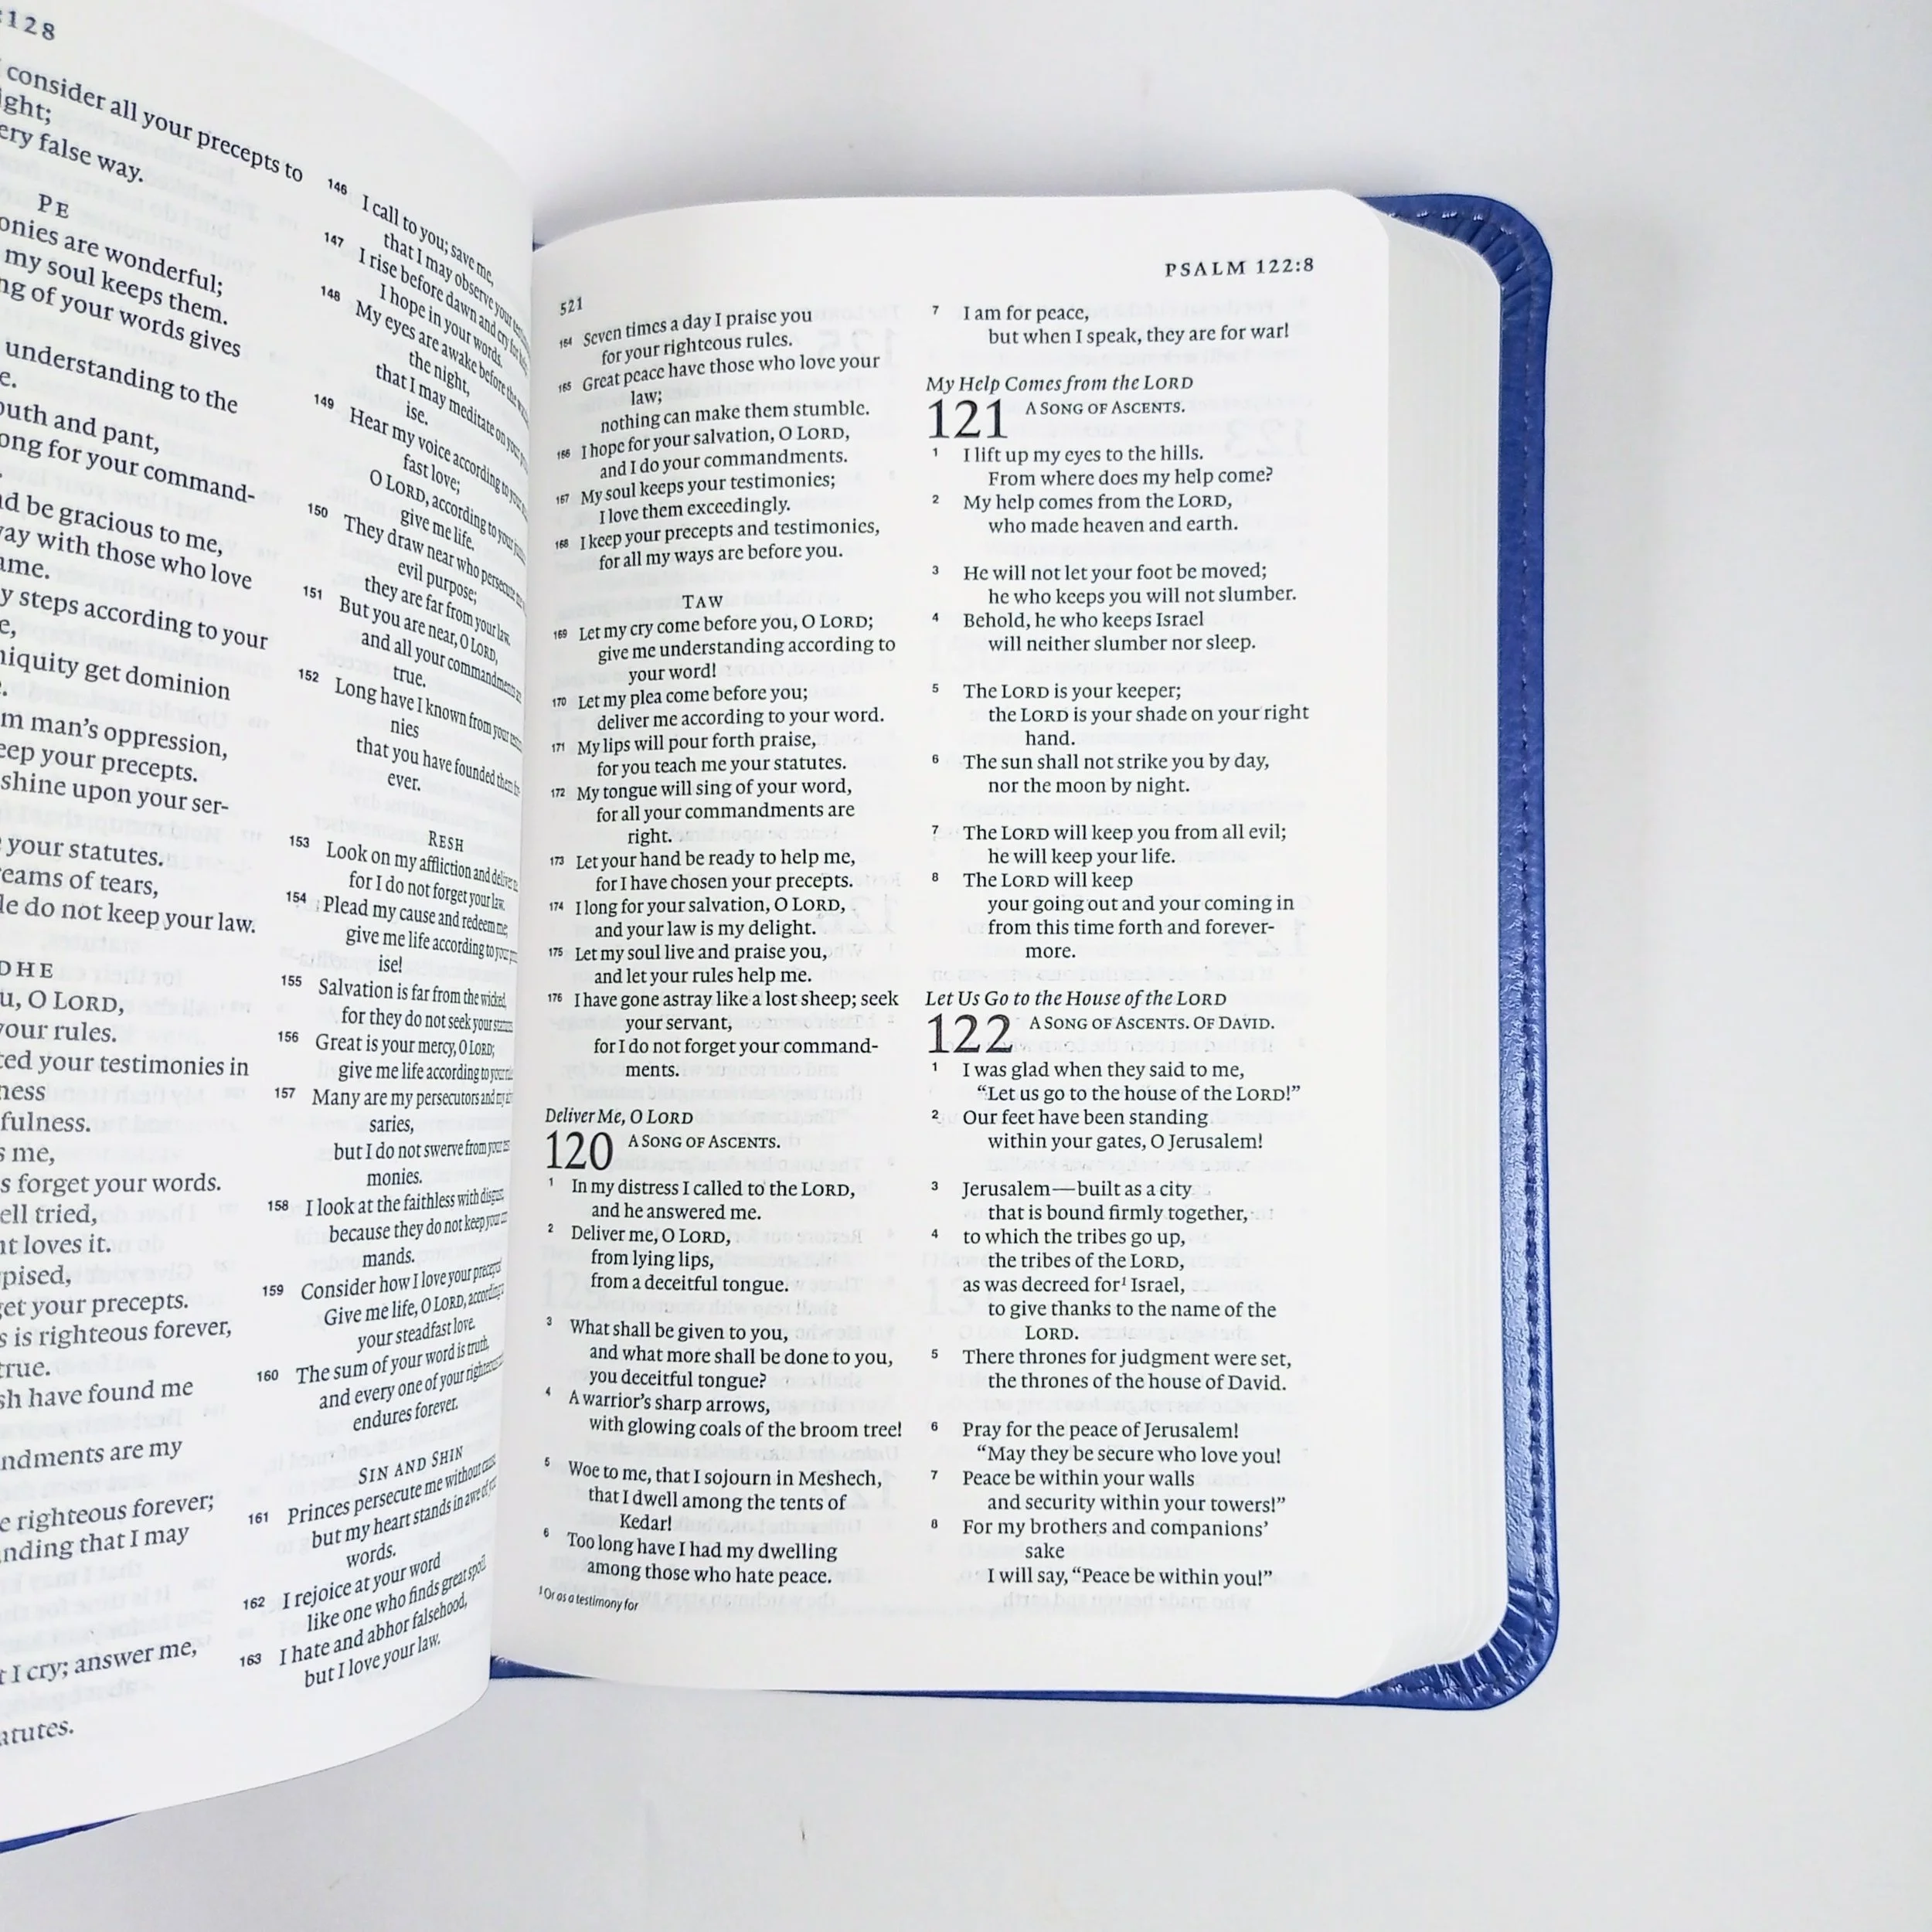 :128
consider all your precepts to
ight;
ery false way.
PE
onies are wonderful;
my soul keeps them.
ng of your words gives
understanding to the
e.
outh and pant,
ong for your command-
nd be gracious to me,
way with those who love
ame.
y steps according to your
e,
niquity get dominion
m man's oppression,
eep your precepts.
shine upon your ser-
your statutes.
eams of tears,
le do not keep your law.
DHE
u, O LORD,
your rules.
ted your testimonies in
ness
fulness.
s me,
s forget your words.
ell tried,
nt loves it.
pised,
get your precepts.
s is righteous forever,
true.
sh have found me
ndments are my
e righteous forever;
nding that I may
t I cry; answer me,
atutes.
146 I call to you; save me,
that I may observe your
147 I rise before dawn and cry for
I hope in your words.
148 My eyes are awake before the
the night,
that I may meditate on your
ise.
149 Hear my voice according to
fast love;
O LORD, according to your
give me life.
150 They draw near who persecute
evil purpose;
they are far from your law.
151 But you are near, O LORD,
and all your commandments
true.
152 Long have I known from your
nies
that you have founded them
ever.
RESH
153 Look on my affliction and deliver
for I do not forget your law.
154 Plead my cause and redeem me;
give me life according to your
ise!
155 Salvation is far from the wicked,
for they do not seek your
156 Great is your mercy, O LORD;
give me life according to
157 Many are my persecutors and my
saries,
but I do not swerve from your
monies.
158 I look at the faithless with disgust,
because they do not keep your
mands.
159 Consider how I love your precepts!
Give me life, O LORD, according
your steadfast love.
160 The sum of your word is truth,
and every one of your righteous
endures forever.
SIN AND SHIN
161 Princes persecute me without cause,
but my heart stands in awe of
words.
162 I rejoice at your word
like one who finds great spoil.
163 I hate and abhor falsehood,
but I love your law.
521
PSALM 122:8
164 Seven times a day I praise you
for your righteous rules.
165 Great peace have those who love your
law;
nothing can make them stumble.
166 I hope for your salvation, O LORD,
and I do your commandments.
167 My soul keeps your testimonies;
I love them exceedingly.
168 I keep your precepts and testimonies,
for all my ways are before you.
TAW
169 Let my cry come before you, O LORD;
give me understanding according to
your word!
170 Let my plea come before you;
deliver me according to your word.
171 My lips will pour forth praise,
for you teach me your statutes.
172 My tongue will sing of your word,
for all your commandments are
right.
173 Let your hand be ready to help me,
for I have chosen your precepts.
174 I long for your salvation, O LORD,
and your law is my delight.
175 Let my soul live and praise you,
and let your rules help me.
176 I have gone astray like a lost sheep; seek
your servant,
for I do not forget your command-
ments.
Deliver Me, O LORD
120 A SONG OF ASCENTS.
1 In my distress I called to the LORD,
and he answered me.
2 Deliver me, O LORD,
from lying lips,
from a deceitful tongue.
3 What shall be given to you,
and what more shall be done to you,
you deceitful tongue?
4 A warrior's sharp arrows,
with glowing coals of the broom tree!
5 Woe to me, that I sojourn in Meshech,
that I dwell among the tents of
Kedar!
6 Too long have I had my dwelling
among those who hate peace.
1 Or as a testimony for
7 I am for peace,
but when I speak, they are for war!
My Help Comes from the LORD
121 A SONG OF ASCENTS.
1 I lift up my eyes to the hills.
From where does my help come?
2 My help comes from the LORD,
who made heaven and earth.
3 He will not let your foot be moved;
he who keeps you will not slumber.
4 Behold, he who keeps Israel
will neither slumber nor sleep.
5 The LORD is your keeper;
the LORD is your shade on your right
hand.
6 The sun shall not strike you by day,
nor the moon by night.
7 The LORD will keep you from all evil;
he will keep your life.
8 The LORD will keep
your going out and your coming in
from this time forth and forever-
more.
Let Us Go to the House of the LORD
122 A SONG OF ASCENTS. OF DAVID.
1 I was glad when they said to me,
“Let us go to the house of the LORD!”
2 Our feet have been standing
within your gates, O Jerusalem!
3 Jerusalem—built as a city
that is bound firmly together,
4 to which the tribes go up,
the tribes of the LORD,
as was decreed for1 Israel,
to give thanks to the name of the
LORD.
5 There thrones for judgment were set,
the thrones of the house of David.
6 Pray for the peace of Jerusalem!
“May they be secure who love you!
7 Peace be within your walls
and security within your towers!”
8 For my brothers and companions’
sake
I will say, “Peace be within you!”